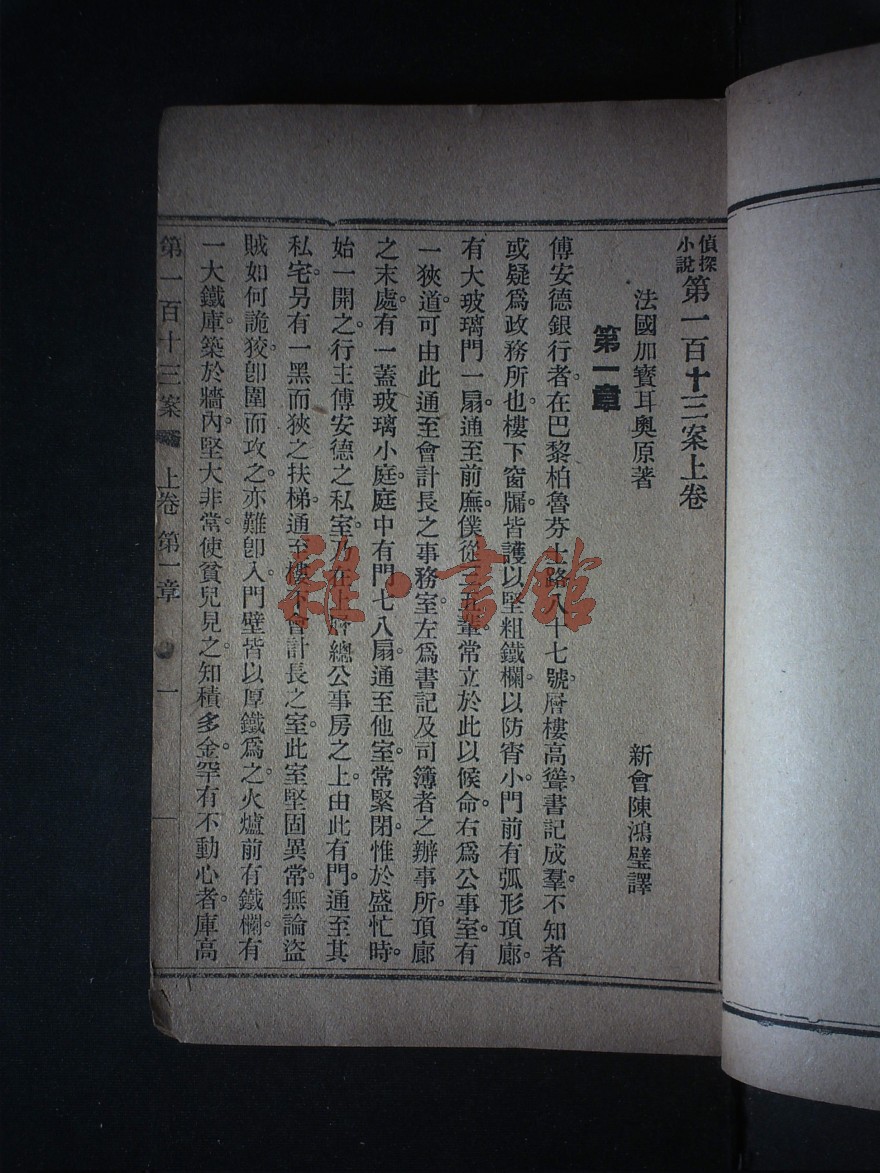 偵探小說 第一百十三案上卷
法國加寶耳奧原著
新會陳鴻璧譯
第一章
傅安德銀行者。在巴黎柏魯芬士路八十七號。層樓高聳。書記成羣。不知者
或疑爲政務所也。樓下窗牖。皆護以堅粗鐵欄。以防宵小。門前有弧形頂廊。
有大玻璃門一扇。通至前廡。僕從三五輩。常立於此以候命。右爲公事室。有
一狹道。可由此通至會計長之事務室。左爲書記及司簿者之辦事所。頂廊
之末處。有一蓋玻璃小庭。庭中有門七八扇。通至他室。常緊閉。惟於盛忙時。
始一開之。行主傅安德之私室。乃在上層總公事房之上。由此有門。通至其
私宅。另有一黑而狹之扶梯。通至樓下會計長之室。此室堅固異常。無論盜
賊如何詭狡。卽圍而攻之。亦難卽入。門壁皆以厚鐵爲之。火爐前有鐵欄。有
一大鐵庫。築於牆內。堅大非常。使貧兒見之。知積多金。罕有不動心者。庫高
第一百十三案 上卷 第一章 一
雜·書館